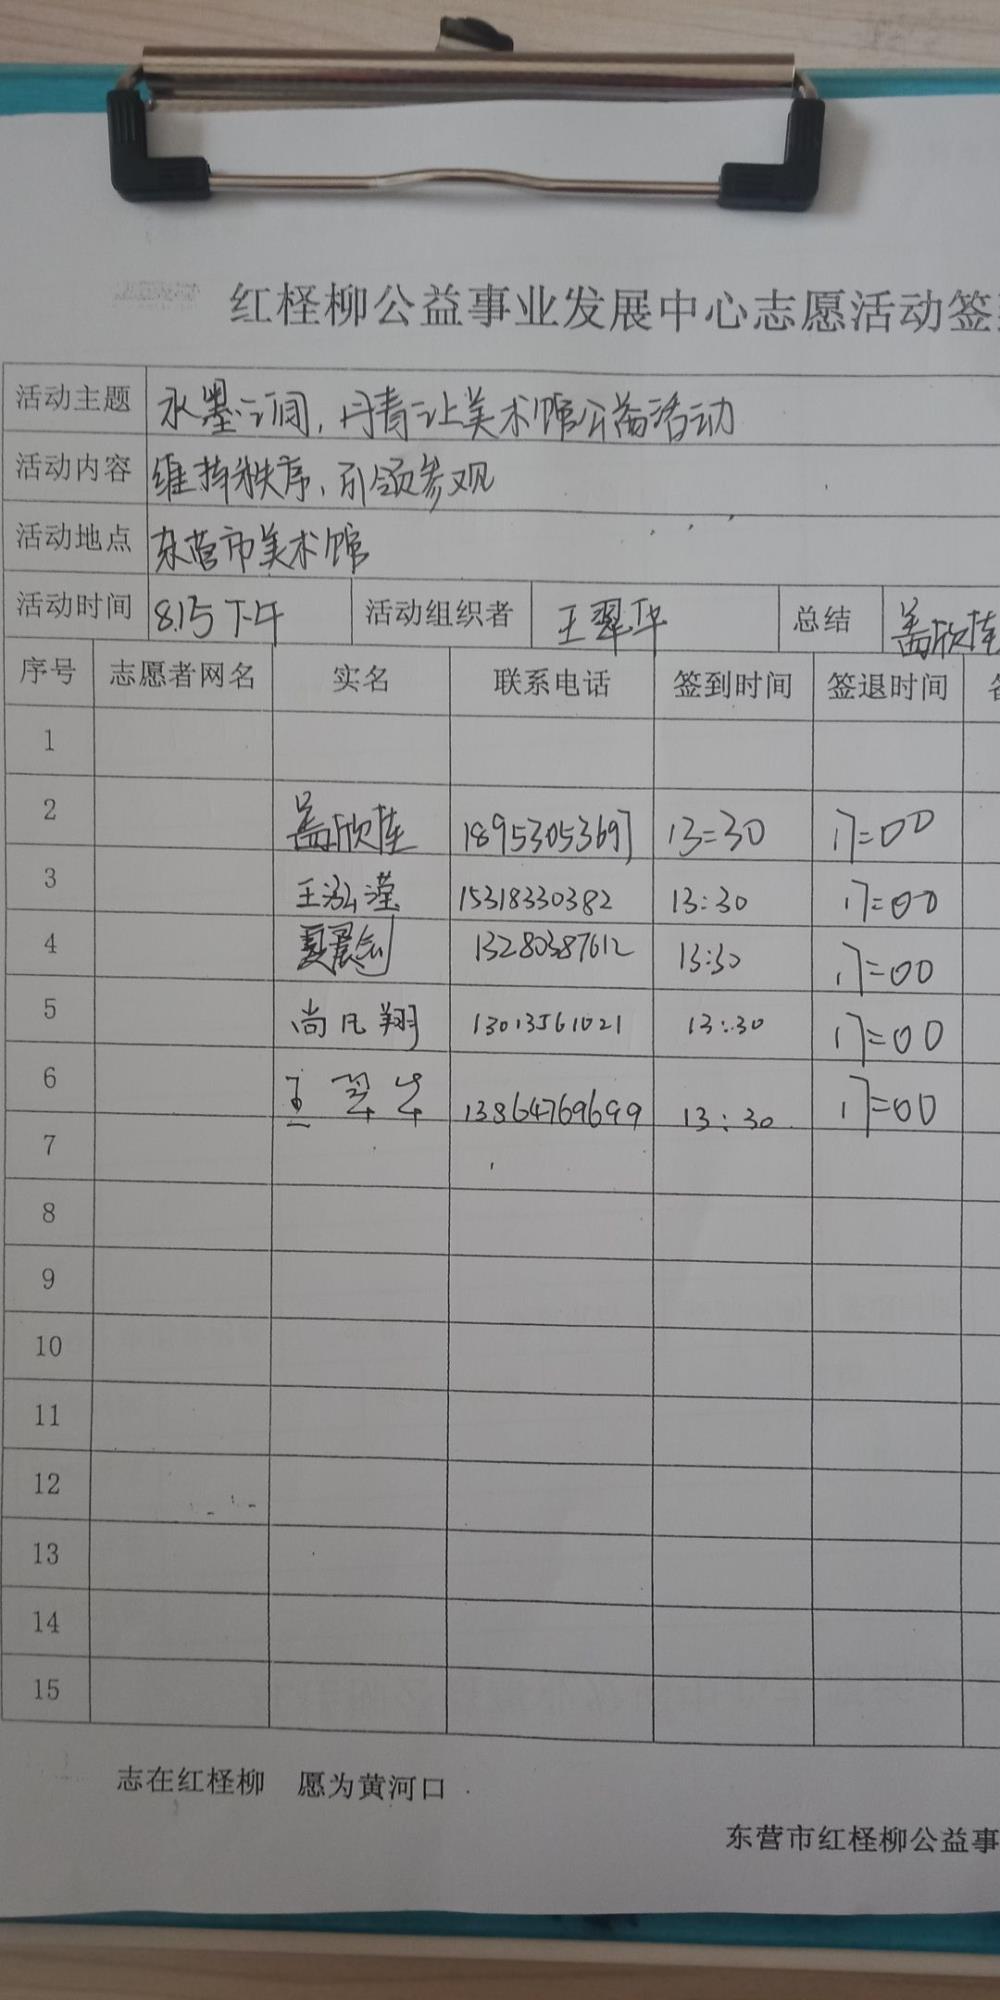 红柽柳公益事业发展中心志愿活动签
活动主题 水墨之间，丹青之上美术馆公益活动
活动内容 维持秩序、引领参观
活动地点 东营市美术馆
活动时间 8.15下午 活动组织者 王翠华 总结 盖欣桂
序号 志愿者网名 实名 联系电话 签到时间 签退时间
1
2 盖欣桂 18953053697 13:30 17:00
3 王泓滢 15318330382 13:30 17:00
4 13280387612 13:30 17:00
5 尚凡翔 13013561021 13:30 17:00
6 王翠华 13864769699 13:30 17:00
7
8
9
10
11
12
13
14
15
志在红柽柳 愿为黄河口
东营市红柽柳公益事